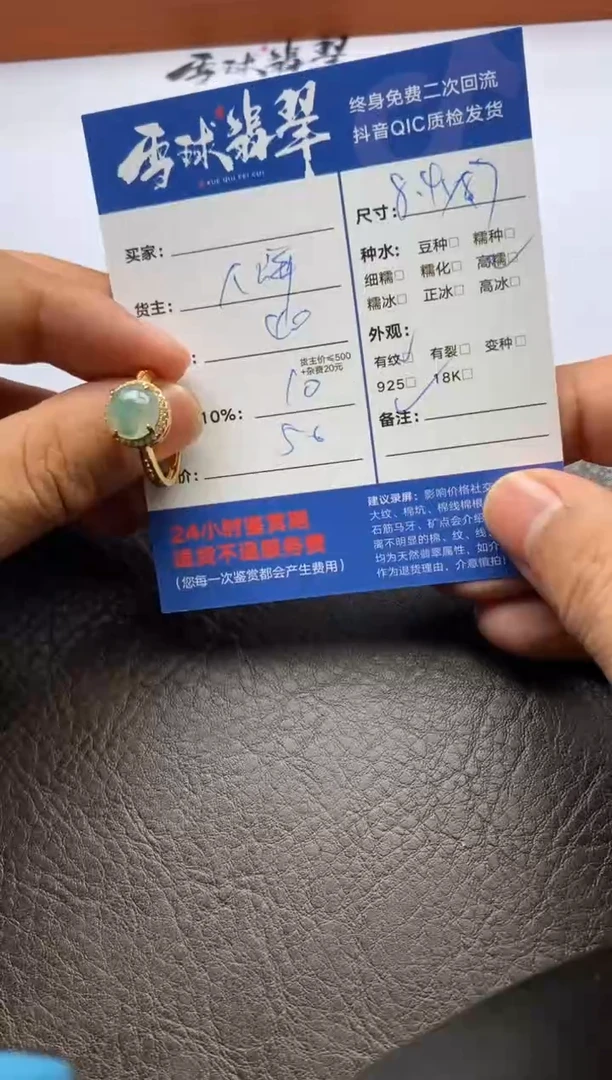 雪球翡翠
雪球翡翠
XUE QIU FEI CUI
终身免费二次回流
抖音QIC质检发货
买家：
货主：
：
货主价≤500
+杂费20元
10%： 10
价：
24小时鉴赏期
退货不退服务费
（您每一次鉴赏都会产生费用）
尺寸：
种水： 豆种□ 糯种□
细糯□ 糯化□ 高糯□
糯冰□ 正冰□ 高冰□
外观：
有纹□ 有裂□ 变种□
925□ 18K□
备注：
建议录屏：影响价格社交
大纹、棉坑、棉线棉根
石筋马牙、矿点会介绍
离不明显的棉、纹、线
均为天然翡翠属性，如介
作为退货理由，介意慎拍